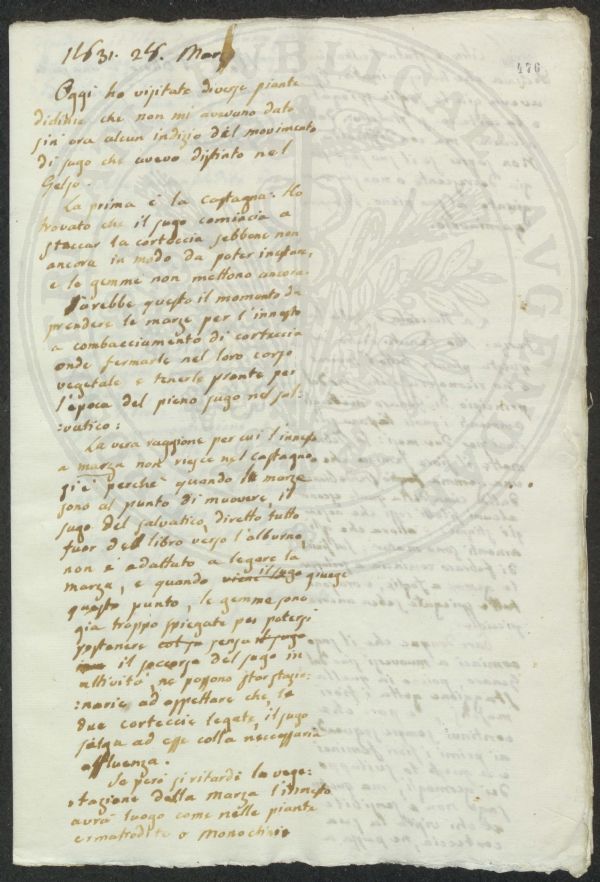 1831. 26. Marzo
476
Oggi ho visitate diverse piante
dicline che non mi avevano dato
sin'ora alcun indizio del movimento
di sugo che avevo distinto nel
Gelso.
La prima è la Castagna. Ho
trovato che il sugo comincia a
staccar la corteccia sebbene non
ancora in modo da poter inestare,
e le gemme non mettono ancora.
Sarebbe questo il momento da
prendere le marze per l'innesto
a combacciamento di corteccia
onde fermarle nel loro corso
vegetale e tenerle pronte per
l'epoca del pieno sugo nel sal:
:vatico:
La vera raggione per cui l'innesto
a marza non riesce nel castagno
si è perche quando le marze
sono al punto di muovere, il
sugo del salvatico, diretto tutto
fuor del libro verso l'alburno,
non è adattato a legare la
marza, e quando viene il sugo giunge
questo punto, le gemme sono
gia troppo spiegate per potersi
sostenere senza il sugo
il soccorso del sugo in
attività, ne possono
:narie ad aspettare che, le
due corteccie legate, il sugo
salga ad esse colla neccessaria
affluenza.
Se però si ritardi la vege:
:tazione della marza l'innesto
avrà luogo come nelle piante
ermafrodite o Monocline